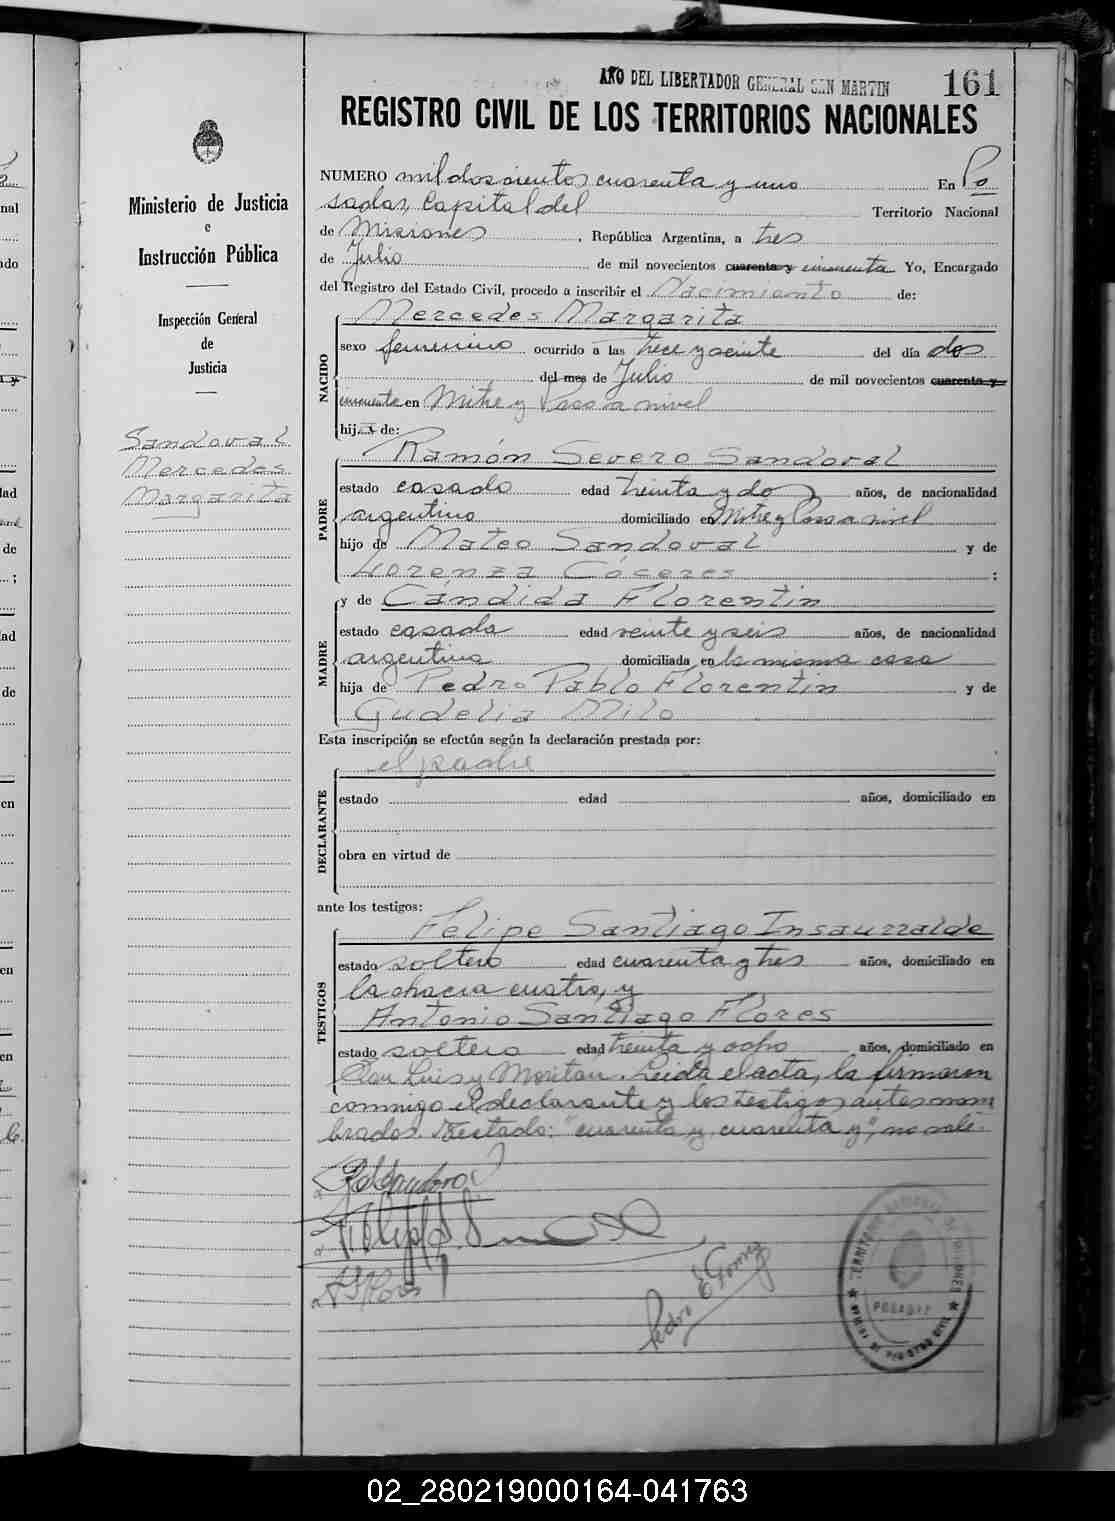 AÑO DEL LIBERTADOR GENERAL SAN MARTIN
161
REGISTRO CIVIL DE LOS TERRITORIOS NACIONALES
Ministerio de Justicia
e
Instrucción Pública
Inspección General
de
Justicia
Sandoval
Mercedes
Margarita
NUMERO mil doscientos cuarenta y uno En Po
sadas, Capital del Territorio Nacional
de Misiones, República Argentina, a tres
de Julio de mil novecientos cuarenta y cincuenta Yo, Encargado
del Registro del Estado Civil, procedo a inscribir el Nacimiento de:
NACIDO
Mercedes Margarita
sexo femenino ocurrido a las trece y veinte del día dos
del mes de Julio de mil novecientos cuarenta y
cincuenta en Mitre y Paso a nivel
hija de:
PADRE
Ramón Severo Sandoval
estado casado edad treinta y dos años, de nacionalidad
argentino domiciliado en Mitre y Paso a nivel
hijo de Mateo Sandoval y de
Lorenza Cáceres ;
MADRE
y de Cándida Florentin
estado casada edad veinte y seis años, de nacionalidad
argentina domiciliada en la misma casa
hija de Pedro Pablo Florentin y de
Gudelia Milo
Esta inscripción se efectúa según la declaración prestada por:
DECLARANTE
el padre
estado edad años, domiciliado en
obra en virtud de
ante los testigos:
TESTIGOS
Felipe Santiago Insaurralde
estado soltero edad cuarenta y tres años, domiciliado en
la chacra cuatro, y
Antonio Santiago Flores
estado soltero edad treinta y ocho años, domiciliado en
San Luis y Moritan. Leida el acta, la firmaron
conmigo el declarante y los testigos antes nom
brados. Testado: "cuarenta y, cuarenta y", no vale.
R S Sandoval
A S Flores
Pedro E Gomez
POSADAS
02_280219000164-041763